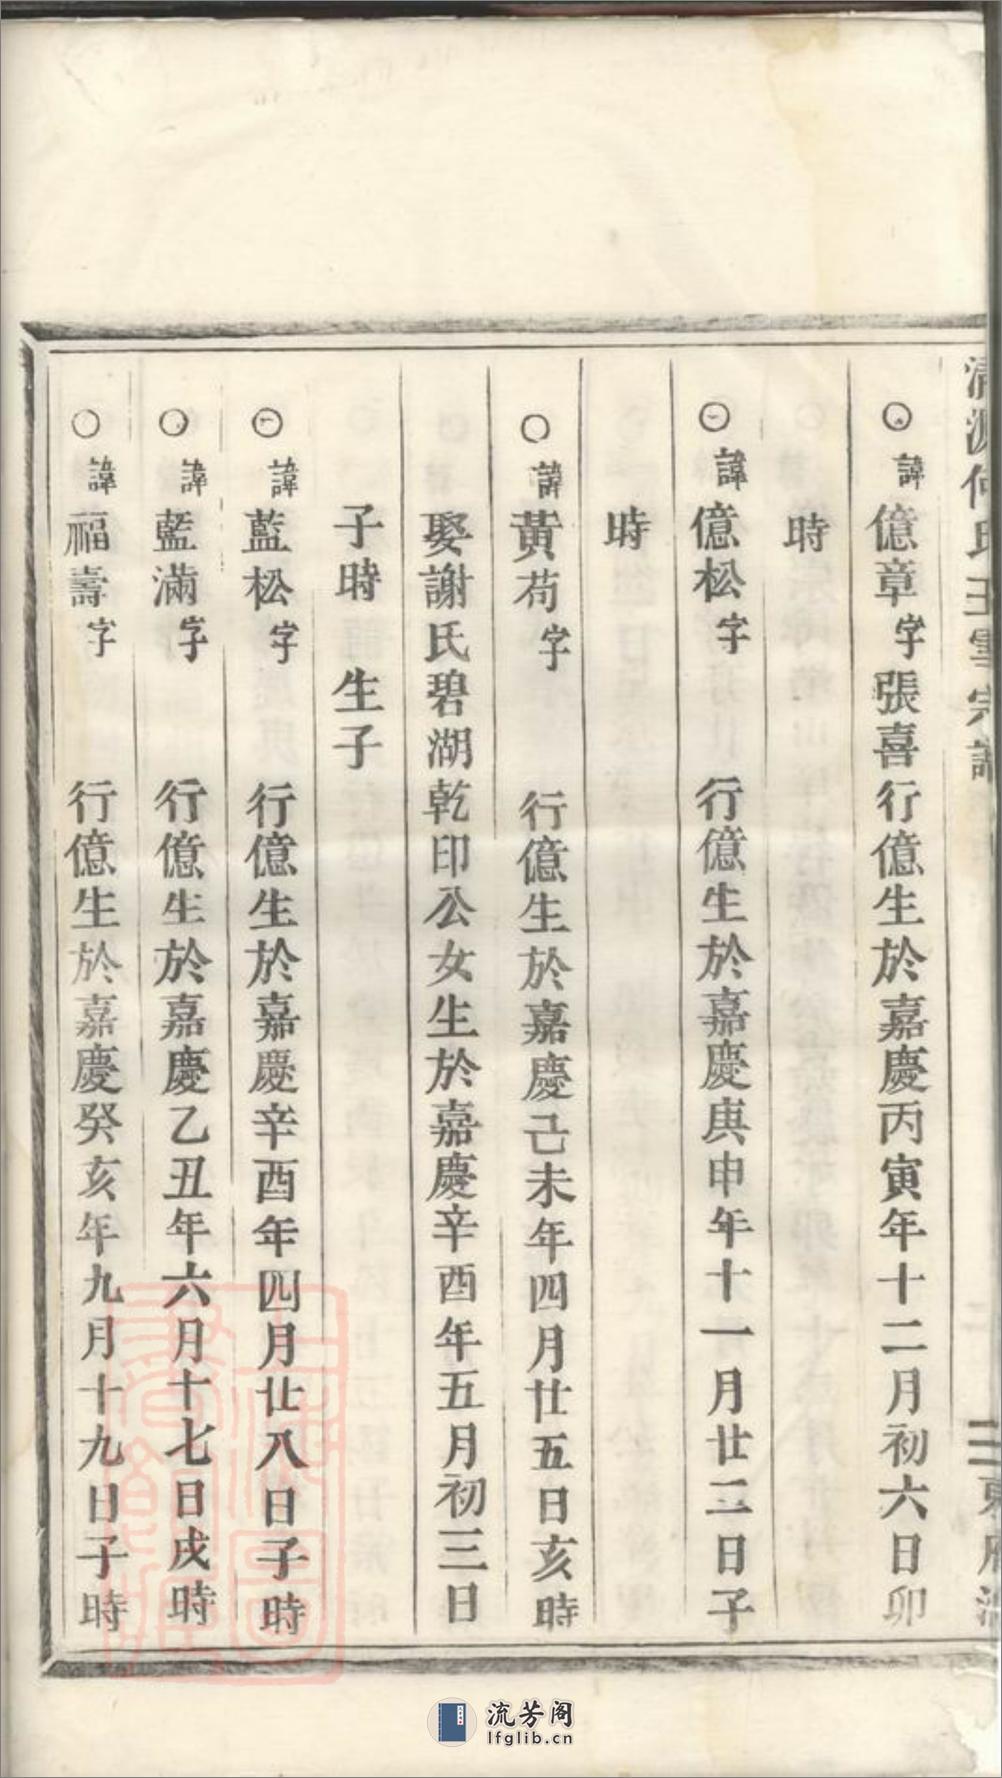 清源何氏玉峯宗譜 東府溫
諱億章字張喜行億生於嘉慶丙寅年十二月初六日卯
時
諱億松字 行億生於嘉慶庚申年十一月廿二日子
時
諱黃苟字 行億生於嘉慶己未年四月廿五日亥時
娶謝氏碧湖乾印公女生於嘉慶辛酉年五月初三日
子時 生子
諱藍松字 行億生於嘉慶辛酉年四月廿八日子時
諱藍滿字 行億生於嘉慶乙丑年六月十七日戌時
諱福壽字 行億生於嘉慶癸亥年九月十九日子時
流芳阁
lfglib.cn